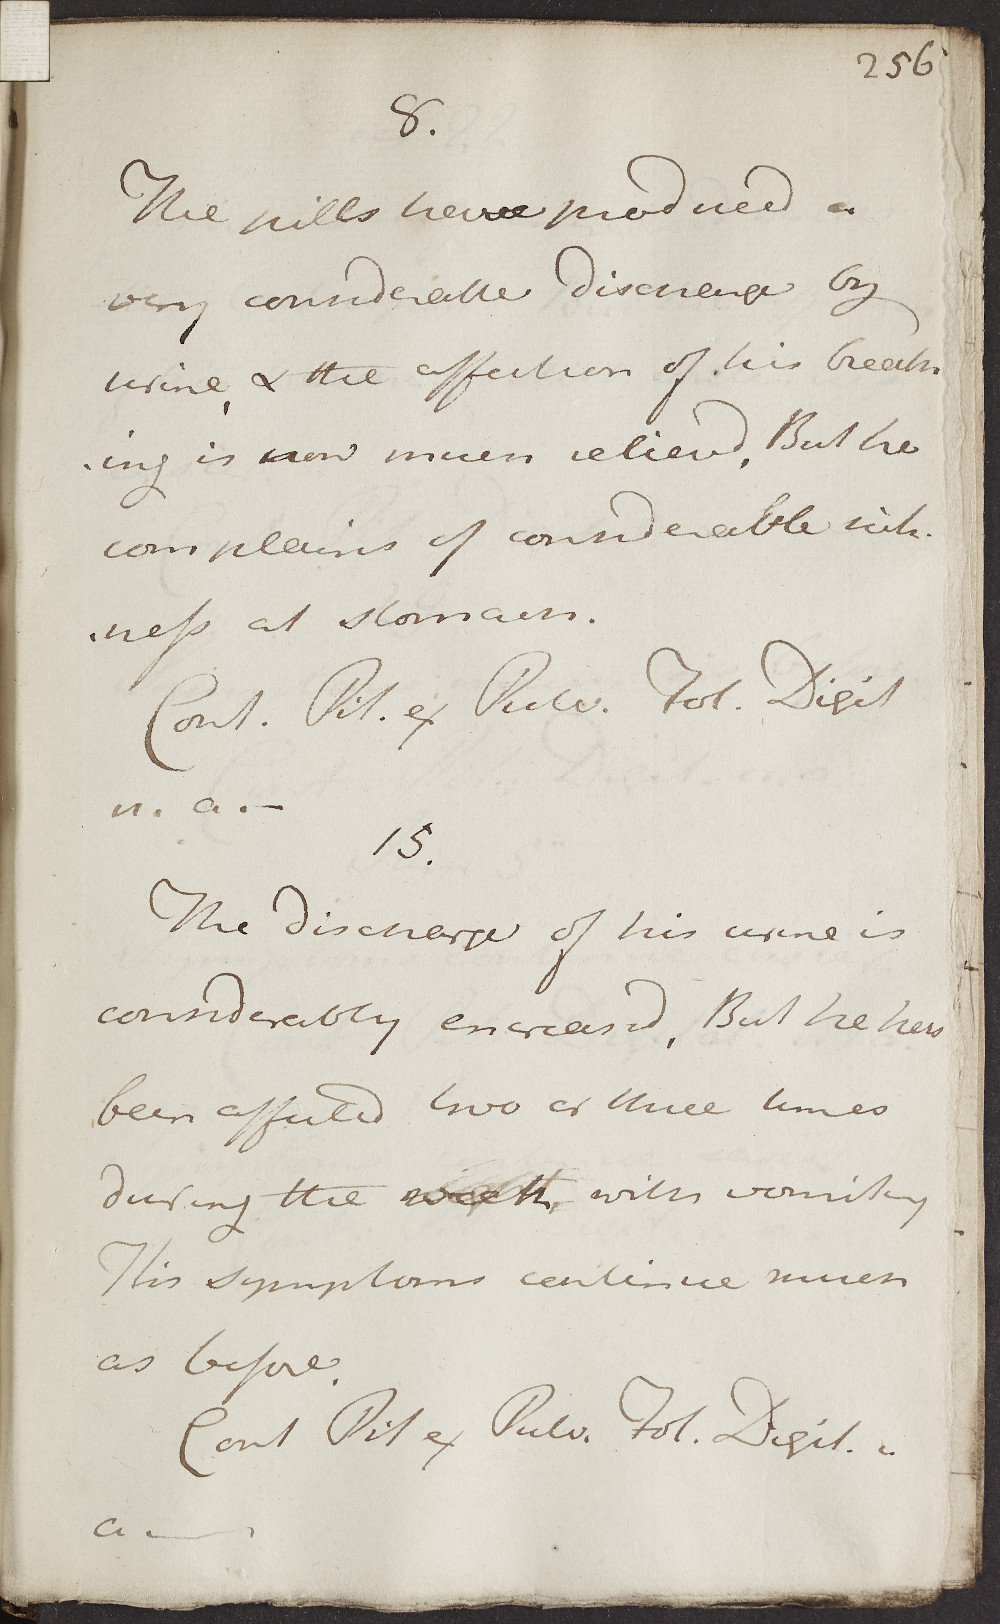 256
8.
The pills have produced a
very considerable discharge by
urine, & the affection of his breath
-ing is now much reliev'd, But he
complains of considerable sick-
-ness at stomach.
Cont. Pil. ex Pulv. Fol. Digit
u. a. —
15.
The discharge of his urine is
considerably encreas'd, But he has
been affected two or three times
during the week with vomiting
His symptoms continue much
as before.
Cont Pil ex Pulv. Fol. Digit. u
a —